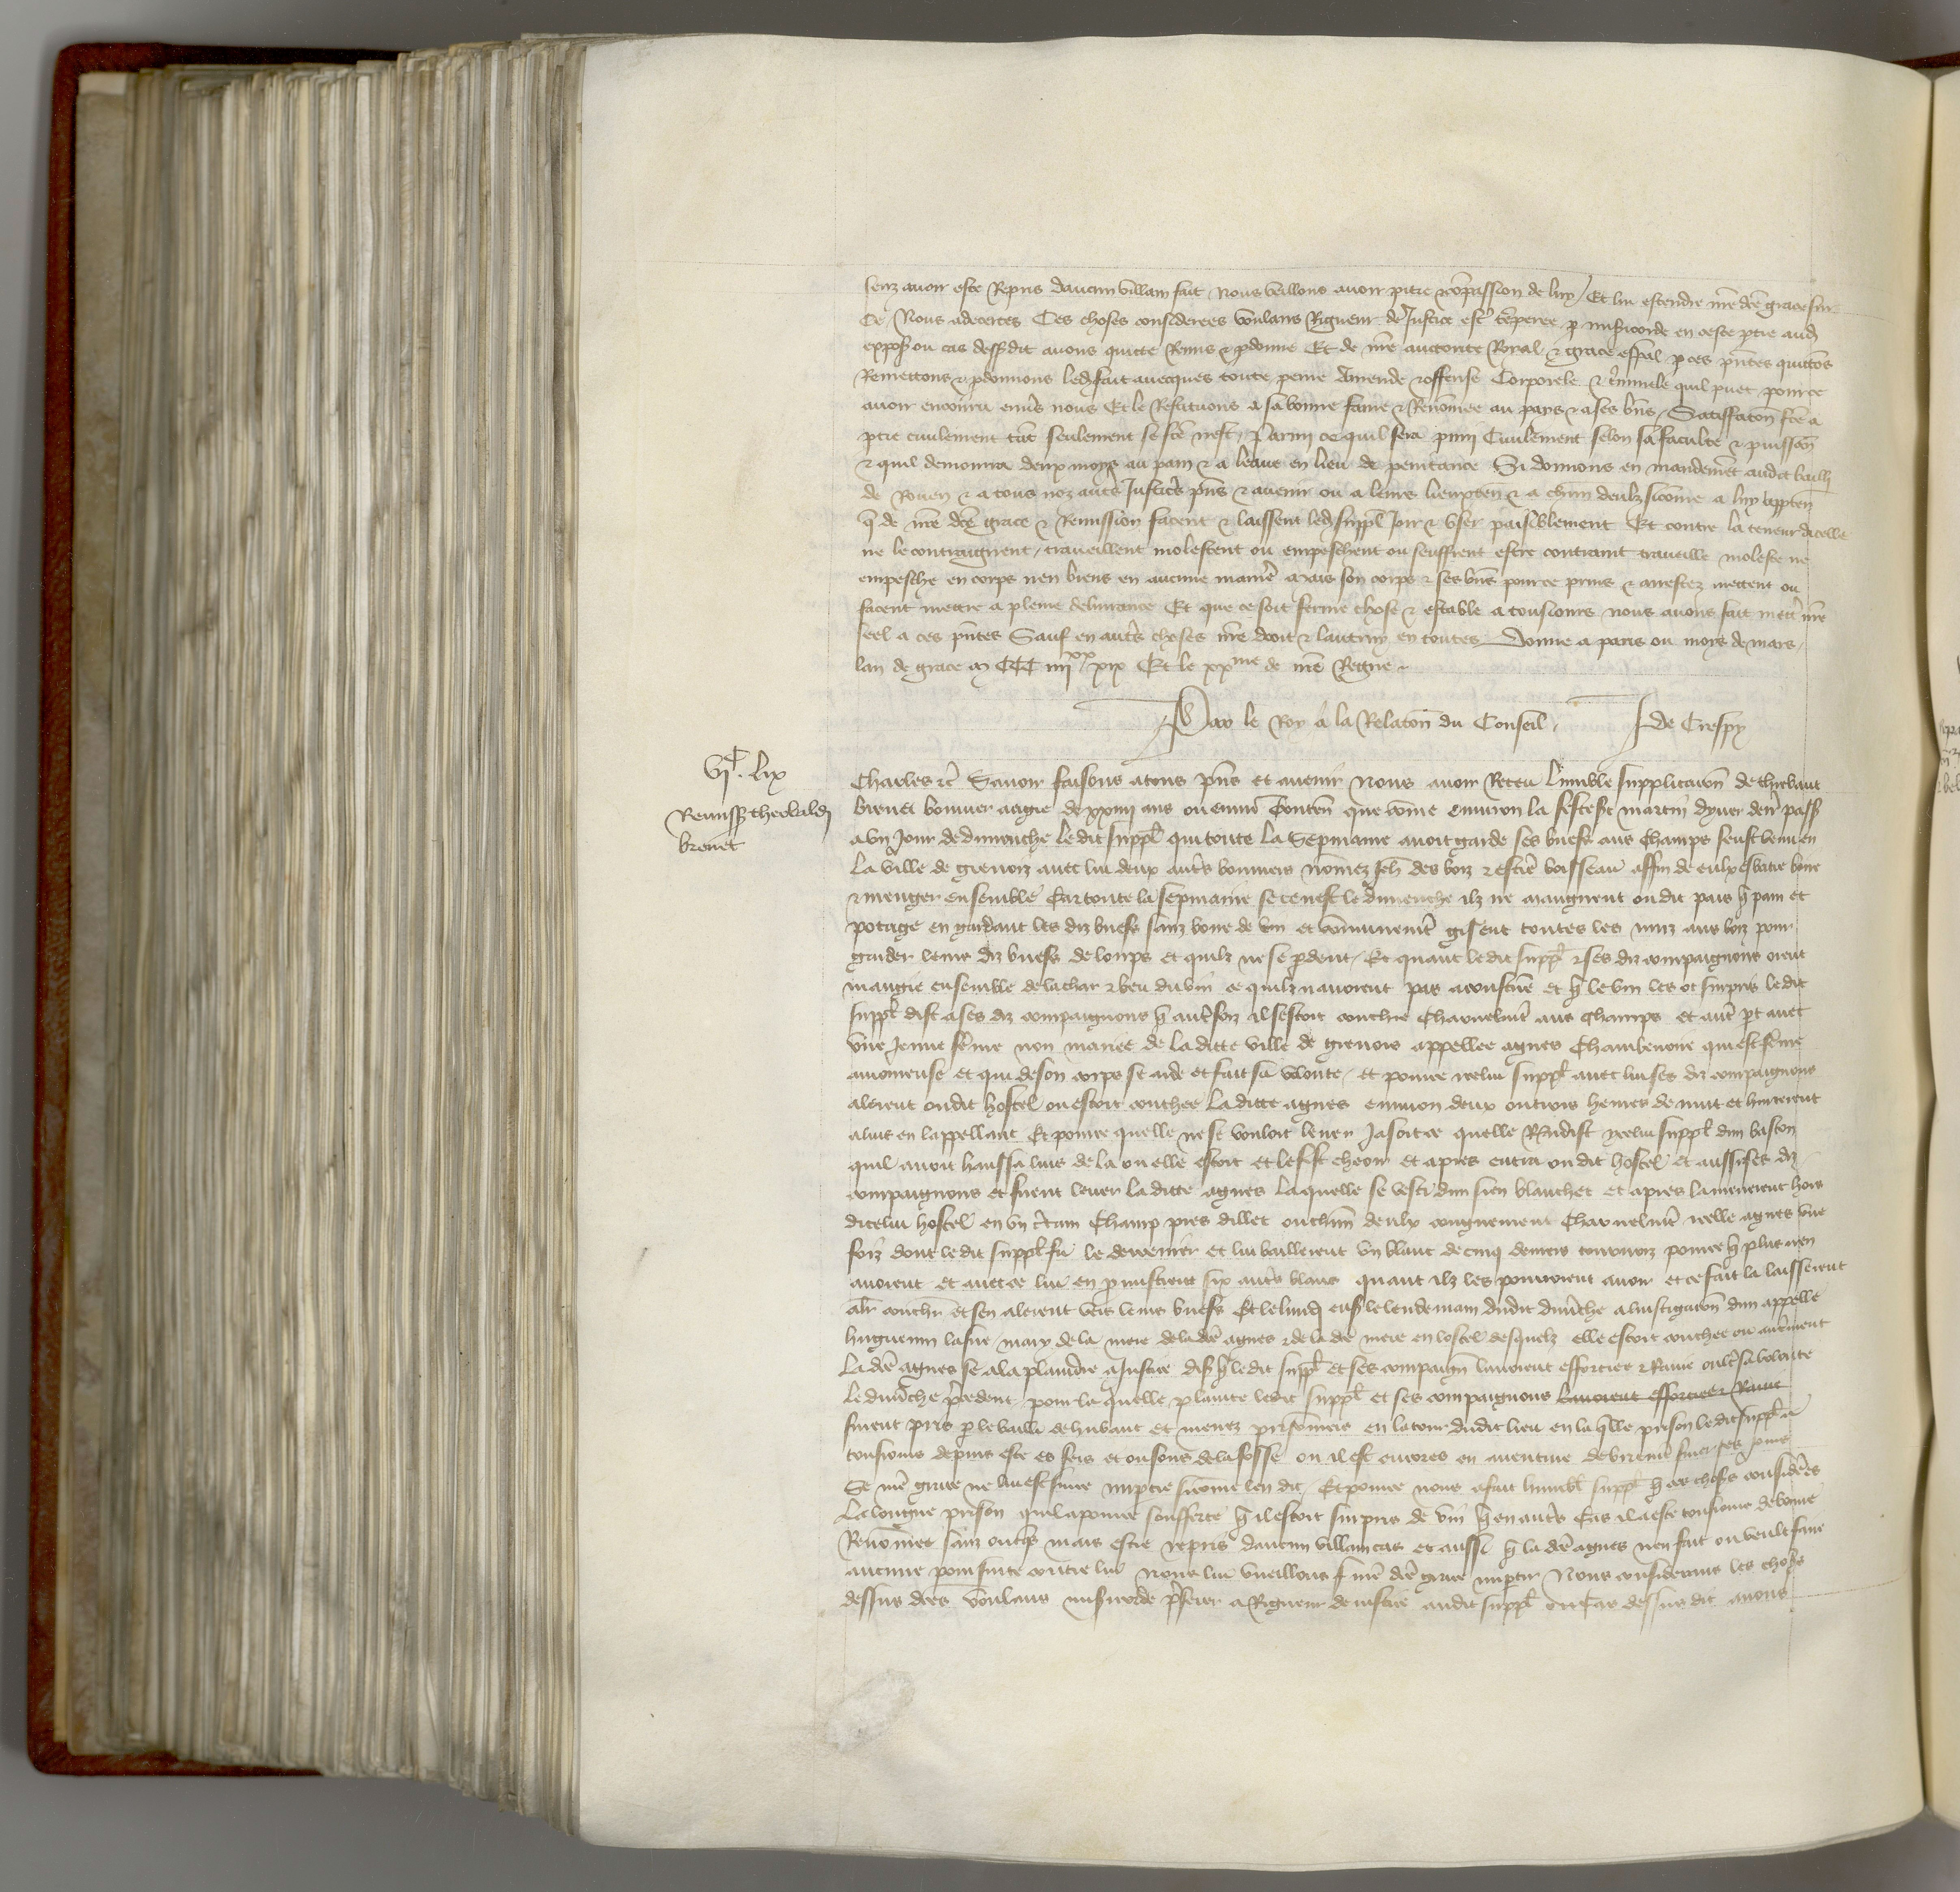 senz avoir este Repris daucun villain fait Nous veillons avoir pitie & compassion de luy / Et lui estendre nre dce grace sur
Ce / Nous adecertes Ces choses considerees voulans Rigueur de Justice estr temperee p misicorde en ceste ptie aud
exposs ou cas dessdit avons quitte Remis & pdonne Et de nre auctorite Royal & grace espal p ces pntes quittons
Remettons & pdonnons led fait avecques toute peine Amende & offense Corporele & cminele quil puet pour ce
avoir encouru envs nous Et le Restituons a sa bonne fame & Renomee au pays & a ses bns / Satisffacon fce a
ptie civilement tant seulement se fce nest / Parmi ce quil sera puni Civilement selon sa faculte & puissan
& quil demourra deux moys au pain & a leaue en lieu de penitance Si donnons en mandement audit bailli
de Rouen & a tous noz autrs Justics pns & avenir ou a leurs lieuxten & a chun deulz sicome a luy apptien
q de nre dce grace & Remission facent & laissent led suppl Joir & user paisiblement Et contre la teneur dicelle
ne le contraignent / traveillent molestent ou empeschent ou seuffrent estre contraint traveille moleste ne
empesche en corps nen biens en aucune manie Mais son corps & ses bns pour ce prins & arrestez mettent ou
facent mettre a pleine delivrance Et que ce soit ferme chose & estable a tousiours nous avons fait mett nre
seel a ces pntes Sauf en autrs choses nre droit & lautruy en toutes Donne a paris ou moys de mars /
lan de grace M CCC iiiixx xix Et le xxme de nre Regne
Par le Roy a la Relacon du Conseil / J de Crespy
vic lix
Remiss theobaldi
brenet
Charles &c Savoir faisons a tous pns et avenir Nous avoir Receu lumble supplicacon de thiebaut
brenet bouvier aagie de xxiiii ans ou envir Conten que come environ la feste st martin dyver denr pass
a un Jour de dimenche le dit suppl qui toute la Sepmaine avoit garde ses buefs aus Champs feust venu en
la ville de grenoiz avec lui deux autrs bouviers nomez Jeh des boiz & estie boisseau affin de eulx esbatre boire
& menger ensemble Car toute la sepmaine se ce nest le dimenche ilz ne maingnent ou dit pais q pain et
potage en gardant les diz buefs sanz boire de vin et comunemt gisent toutes les nuiz aus boiz pour
garder leurs diz buefs de loups et quilz ne se pdent / Et quant ledit suppl & ses diz compaignons orent
mangie ensemble de la char & beu du vin ce quilz navoient pas acoustume et q le vin les ot surpris ledit
suppl dist a ses diz compaignons q autrsfoiz il sestoit couchie Charnelmt aus champs et autr pt avec
une Jenne feme non mariee de la ditte ville de grenois appellee agnes qui est feme
amoureuse et qui de son corps se aide et fait sa volente / et pource icelui suppl avec lui ses diz compaignons
alerent ou dit hostel ou estoit couchee la ditte agnes environ deux ou trois heures de nuit et hurterent
a luis en lappellant Et pource quelle ne se vouloit lever Ja soit ce quelle Rendist ycelui suppl dun baston
quil avoit haussa luis de la ou elle estoit et le fist cheoir et apres entra ou dit hostel et aussi ses diz
compaignons et firent lever la ditte agnes laquelle se vesti dun sien blanchet et apres lamenerent hors
dicelui hostel en un crtain Champ pres dillec ou chun deulx congnurent Charnelmt icelle agnes une
foiz dont le dit suppl fu le derrenier et lui baillerent un blanc de cinq deniers tournoiz pource q plus nen
avoient et avec ce lui en pmistrent six autrs blans quant ilz les pourroient avoir et ce fait la laisserent
alr couchr et sen alerent vers leurs buefs Et le lundi ens le lendemain dudit dimche a linstigacon dun appelle
huguenin mary de la mere de la dce agnes & de la dce mere en lostel desquelz elle estoit couchee ou autrment
la dce agnes se ala plaindre a Justice dis q ledit suppl et ses compaign lavoient efforciee & Ravie oultr sa volente
le dimche precedent pour la quelle plainte ledit suppl et ses compaignons lavoient efforciee & Ravie
furent pris p le bailli et menez prisonniers en la tour dudit lieu en laqlle prison ledit suppl a
tousiours depuis este es fers et ou fons de la fosse ou il est encores en aventure de briefmt finer ses jours
Se nre grace ne lui est sur ce impartie sicomme len dit / Et pource nous a fait humblt suppl q ces choses considerees
la longue prison quil a pource soufferte q il estoit surpris de vin q en autrs Cas il a este tousiours de bonne
Renommee sanz onques mais estre repris daucun villain cas et aussi q la dce agnes nen fait ou veult faire
aucune poursuite contre lui nous lui vueillons nre dce grace impartir Nous considerans les choses
dessus dces voulans misericorde preferer a Rigueur de justice audit suppl ou cas dessus dit avons